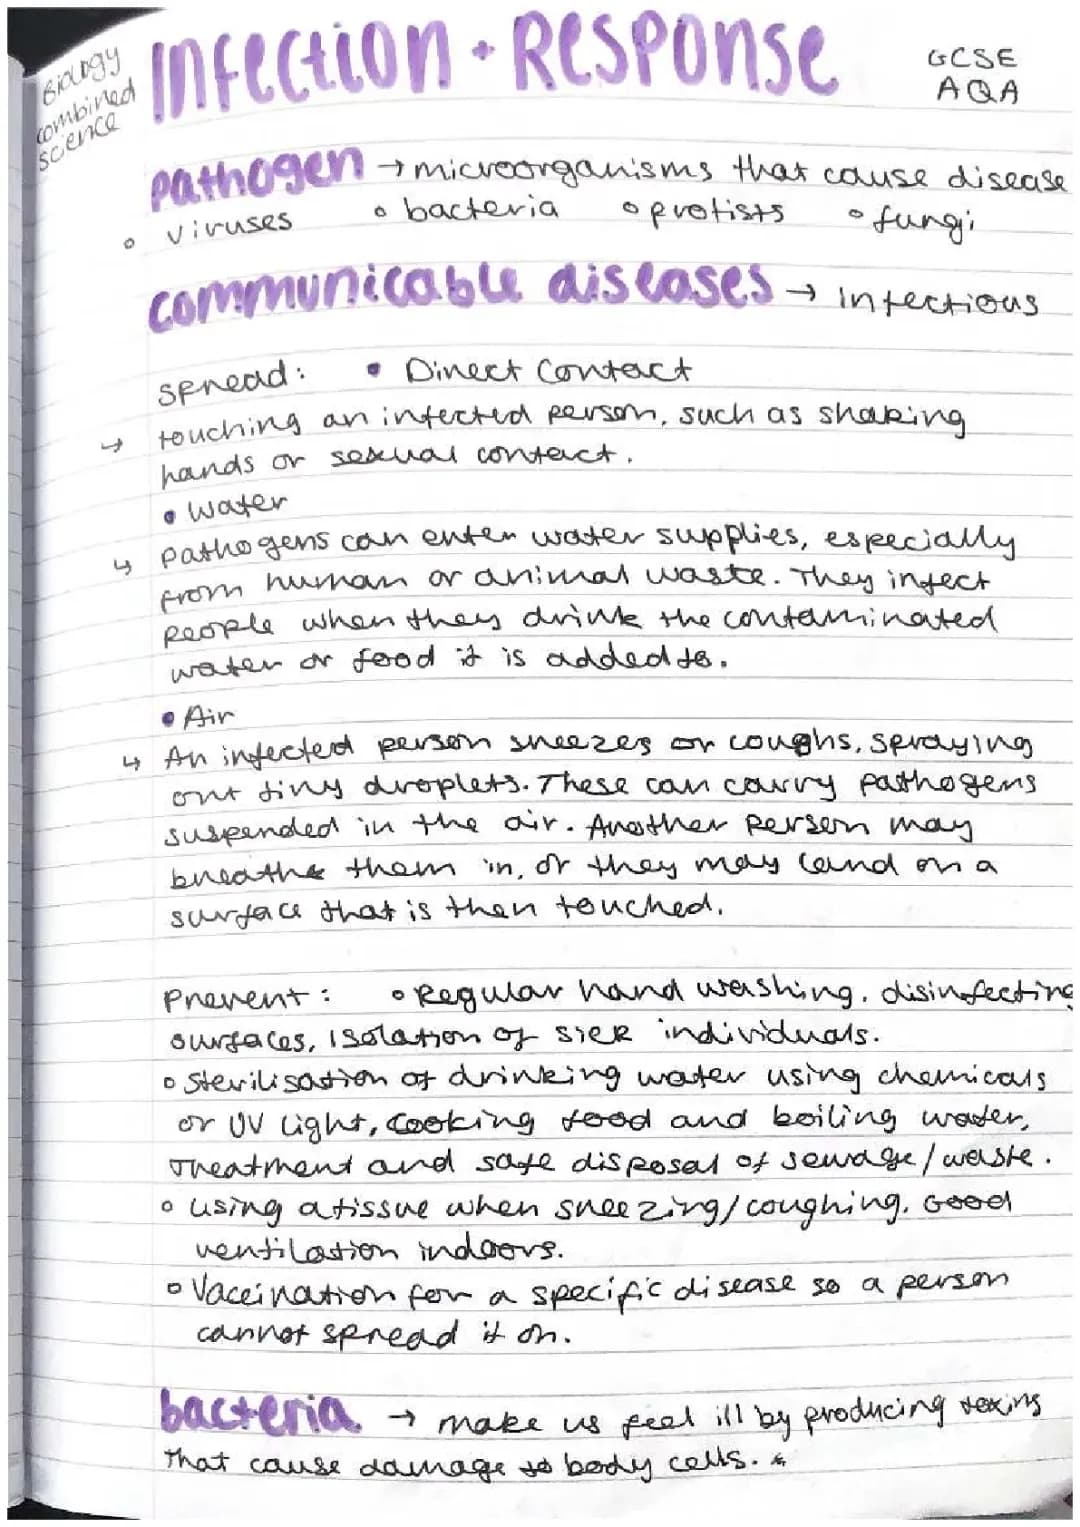 Biology
combined
science
Infection + Response
GCSE
AQA
pathogen → microorganisms that cause disease
◦ viruses ◦ bacteria ◦ protists ◦ fungi
communicable diseases → infectious
spread: • Direct Contact
↳ touching an infected person, such as shaking
hands or sexual contact.
• Water
↳ Pathogens can enter water supplies, especially
from human or animal waste. They infect
people when they drink the contaminated
water or food it is added to.
• Air
↳ An infected person sneezes or coughs, spraying
out tiny droplets. These can carry pathogens
suspended in the air. Another person may
breathe them in, or they may land on a
surface that is then touched.
Prevent: ◦ Regular hand washing, disinfecting
surfaces, isolation of sick individuals.
◦ Sterilisation of drinking water using chemicals
or UV light, cooking food and boiling water,
Treatment and safe disposal of sewage/waste.
◦ Using a tissue when sneezing/coughing. Good
ventilation indoors.
◦ Vaccination for a specific disease so a person
cannot spread it on.
bacteria → make us feel ill by producing toxins
that cause damage to body cells.